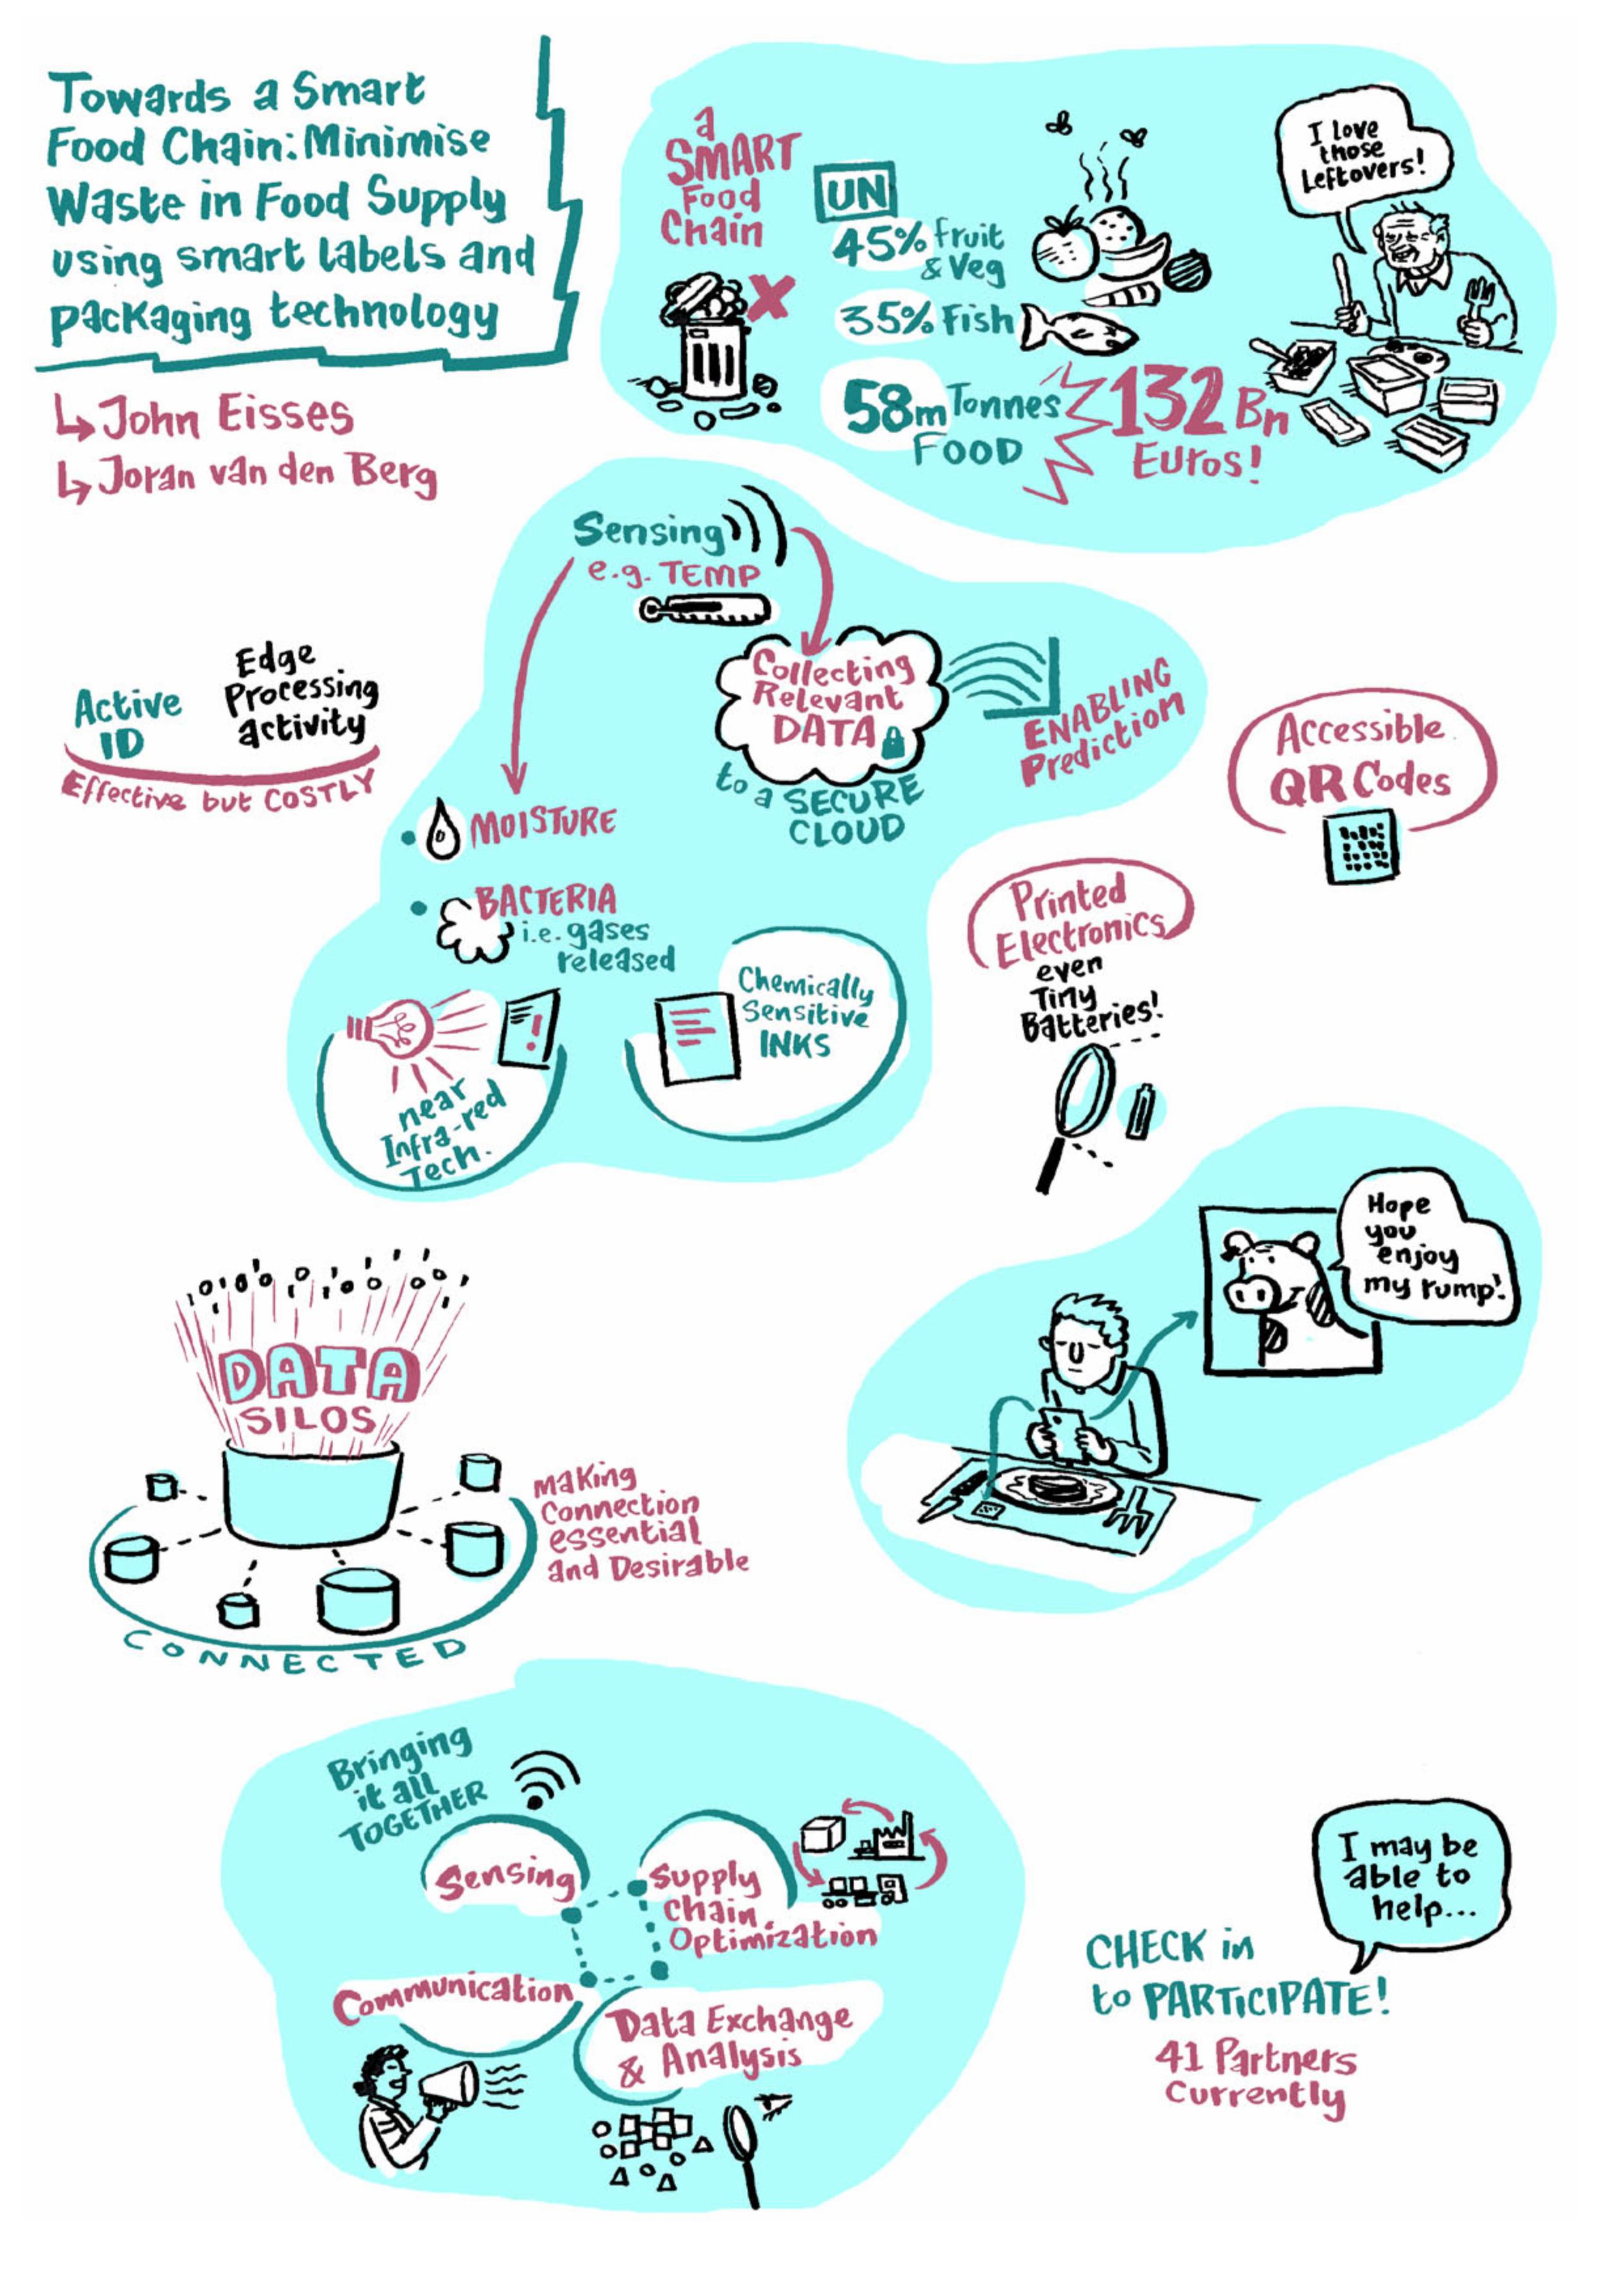 Towards a Smart
Food Chain: Minimise
Waste in Food Supply
using smart labels and
packaging technology
John Eisses
Joran van den Berg
a
SMART
Food
Chain
UN
45% fruit
& Veg
35% Fish
58m Tonnes
FOOD
132 Bn
Euros!
I love
those
Leftovers!
Sensing
e.g. TEMP
Collecting
Relevant
DATA
to a SECURE
CLOUD
ENABLING
Prediction
Active
ID
Edge
Processing
activity
Effective but COSTLY
MOISTURE
BACTERIA
i.e. gases
released
near
Infra-red
Tech.
Chemically
Sensitive
INKS
Accessible
QR Codes
Printed
Electronics
even
Tiny
Batteries!
Hope
you
enjoy
my rump!
DATA
SILOS
Making
Connection
essential
and Desirable
CONNECTED
Bringing
it all
TOGETHER
Sensing
Supply
Chain
Optimization
Communication
Data Exchange
& Analysis
I may be
able to
help...
CHECK in
to PARTICIPATE!
41 Partners
Currently